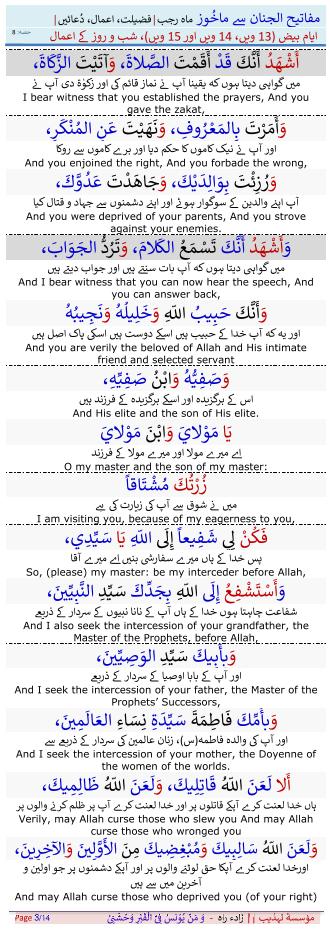 مفاتیح الجنان سے ماخُوز| ماہ رجب| فضیلت، اعمال، دُعائیں|
ایام بیض (13 ویں، 14 ویں اور 15 ویں)، شب و روز کے اعمال
حصّہ: 8
أَشْهَدُ أَنَّكَ قَدْ أَقَمْتَ الصَّلاةَ، وَآتَيْتَ الزَّكَاةَ،
میں گواہی دیتا ہوں کہ یقینا آپ نے نماز قائم کی اور زکوٰۃ دی آپ نے
I bear witness that you established the prayers, And you
gave the zakat,
وَأَمَرْتَ بِالمَعْرُوفِ، وَنَهَيْتَ عَنِ المُنْكَرِ،
اور آپ نے نیک کاموں کا حکم دیا اور برے کاموں سے روکا
And you enjoined the right, And you forbade the wrong,
وَرُزِئْتَ بِوَالِدَيْكَ، وَجَاهَدْتَ عَدُوَّكَ،
آپ اپنے والدین کے سوگوار ہوئے اور اپنے دشمنوں سے جہاد و قتال کیا
And you were deprived of your parents, And you strove
against your enemies.
وَأَشْهَدُ أَنَّكَ تَسْمَعُ الكَلامَ، وَتَرُدُّ الجَوَابَ،
میں گواہی دیتا ہوں کہ آپ بات سنتے ہیں اور جواب دیتے ہیں
And I bear witness that you can now hear the speech, And
you can answer back,
وَأَنَّكَ حَبِيبُ اللهِ وَخَلِيلُهُ وَنَجِيبُهُ
اور یہ کہ آپ خدا کے حبیب ہیں اسکے دوست ہیں اسکی پاک اصل ہیں
And you are verily the beloved of Allah and His intimate
friend and selected servant
وَصَفِيُّهُ وَابْنُ صَفِيِّهِ،
اس کے برگزیدہ اور اسکے برگزیدہ کے فرزند ہیں
And His elite and the son of His elite.
يَا مَوْلايَ وَابْنَ مَوْلايَ
اے میرے مولا اور میرے مولا کے فرزند
O my master and the son of my master:
زُرْتُكَ مُشْتَاقاً
میں نے شوق سے آپ کی زیارت کی ہے
I am visiting you, because of my eagerness to you,
فَكُنْ لِي شَفِيعاً إِلَى اللهِ يَا سَيِّدِي،
پس خدا کے ہاں میرے سفارشی بنیں اے میرے آقا
So, (please) my master: be my interceder before Allah,
وَأَسْتَشْفِعُ إِلَى اللهِ بِجَدِّكَ سَيِّدِ النَّبِيِّينَ،
شفاعت چاہتا ہوں خدا کے ہاں آپ کے نانا نبیوں کے سردار کے ذریعے
And I also seek the intercession of your grandfather, the
Master of the Prophets, before Allah,
وَبِأَبِيكَ سَيِّدِ الوَصِيِّينَ،
اور آپ کے بابا اوصیا کے سردار کے ذریعے
And I seek the intercession of your father, the Master of the
Prophets’ Successors,
وَبِأُمِّكَ فَاطِمَةَ سَيِّدَةِ نِسَاءِ العَالَمِينَ،
اور آپ کی والدہ فاطمہ(س)، زنان عالمین کی سردار کے ذریعے سے
And I seek the intercession of your mother, the Doyenne of
the women of the worlds.
أَلا لَعَنَ اللهُ قَاتِلِيكَ، وَلَعَنَ اللهُ ظَالِمِيكَ،
ہاں خدا لعنت کرے آپکے قاتلوں پر اور خدا لعنت کرے آپ پر ظلم کرنے والوں پر
Verily, may Allah curse those who slew you And may Allah
curse those who wronged you
وَلَعَنَ اللهُ سَالِبِيكَ وَمُبْغِضِيكَ مِنَ الأَوَّلِينَ وَالآخِرِينَ،
اورخدا لعنت کرے آپکا حق لوٹنے والوں پر اور آپکے دشمنوں پر جو اولین و
آخرین میں سے ہیں
And may Allah curse those who deprived you (of your right)
مؤسسة تہذیب || زادہ راہ - وَ مَنْ يُوْنَسُ فِي الْقَبْرِ وَحْشَتِيْ Page 3/14